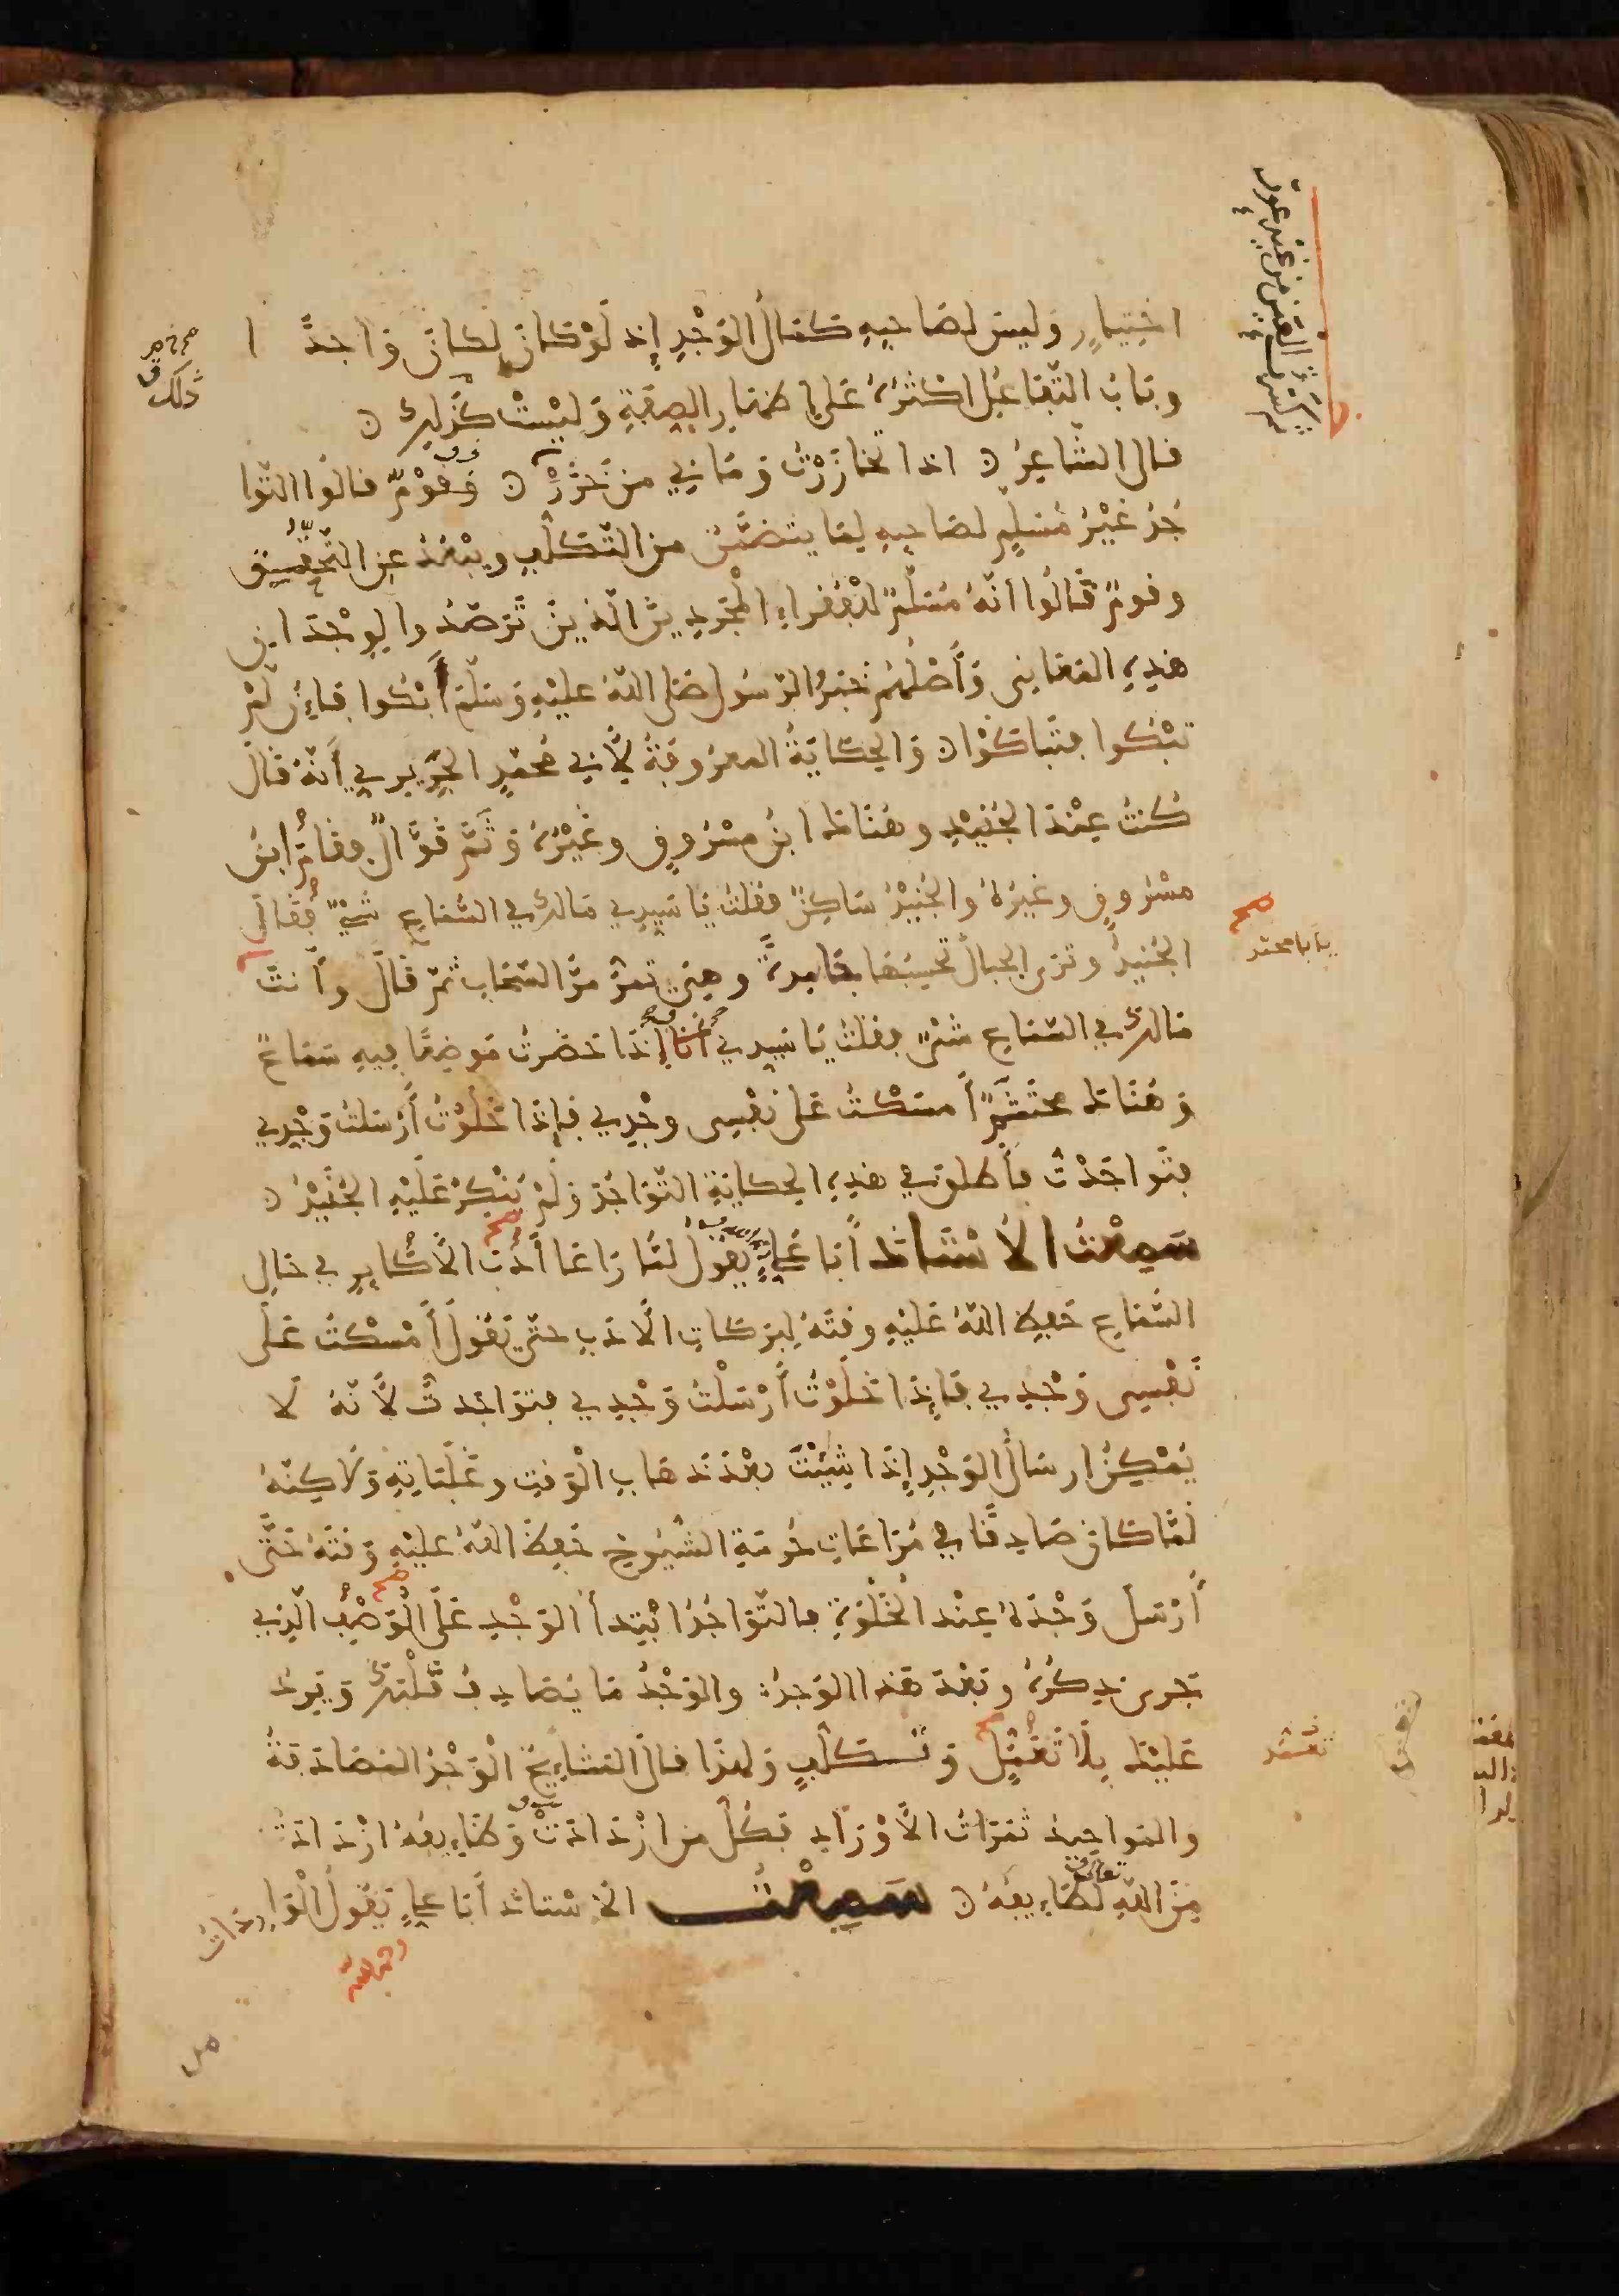 اخْتِيارٍ وَليسَ لصَاحبِهِ كَمَالُ الوَجْدِ إِذ لَوْ كَانَ لكانَ وَاجدً ا
وبَابُ التّفَاعُلِ اكْثَرُهُ عَلى إِظهَارِ الصِفَةِ وَليْسَتْ كذلِكَ
قال الشّاعِرُ اذا تخازَرْتُ وَمَا بي من خَزَرْ فَقَوْمٌ قالُوا التّوا
جُدُ غَيْرُ مُسَلمٍ لصَاحبهِ لِمَا يتضَمَّنُ من التّكلُّفِ ويبْعُدُ عن التَّحْقِيقِ
وقومٌ قَالُوا انّهُ مُسَلَّمٌ للفُقَراءِ المُجَرّدِينَ الّذينَ تَرَصّدُوا لِوجْدَانِ
هَذِهِ المَعَانِى وَأَصْلهُمْ خَبَرُ الرّسُولِ صَلى اللهُ عَليْهِ وَسَلّمَ أَبْكُوا فَإِن لَمْ
تبْكُوا فتَبَاكَوْا وَالحِكَايَةُ المعرُوفَةُ لأَبي مُحمّدٍ الجُرَيري أَنّهُ قَالَ
كُنتُ عِنْدَ الجُنَيْدِ وهُنَاك ابنُ مسْرُوقٍ وغَيْرُهُ وَثَمَّ قوَّالٌ فقامَ ابنُ
مسْرُوقٍ وغيرُهُ والجُنَيْدُ سَاكِنٌ فقلتُ يَا سَيدِي مَالكَ في السّمَاعِ شَيْءٌ فقَالَ
الجُنيدُ وتَرَى الجِبالَ تحسِبُهَا جَامدةً وهيَ تمرّ مَرَّ السّحَابِ ثمّ قَالَ وأَنتَ
يا با محمد
مَالكَ في السّمَاعِ شَيْءٌ فقلتُ يَا سَيدِي أَنَا إِذَا حَضَرتُ مَوضِعًا فِيهِ سَمَاعٌ
وَهُنَاكَ محْتَشَمٌ أَمسَكْتُ عَلى نفْسِى وجْدِي فإِذَا خَلَوْتُ أَرْسَلتُ وَجْدِي
فتَوَاجَدْتُ فأَطلقَ في هَذِهِ الحِكايَةِ التّوَاجُدَ وَلَمْ يُنْكِرْ عَلَيْهِ الجُنَيْدُ
سَمِعْتُ الأُسْتَاذ أَبَا عَلِيٍّ يقُولُ لمّا رَاعَا أَدَبَ الأَكَابِرِ في حَالِ
السَّمَاعِ حَفِظَ اللهُ عَليْهِ وقتَهُ لِبَرَكاتِ الأَدَبِ حتّى يَقُولَ أَمْسَكْتُ عَلَى
نَفْسِى وَجْدِي فَإِذَا خَلَوْتُ أَرْسَلْتُ وَجْدِي فتَوَاجَدتُّ لأَنّهُ لَا
يُمْكِنُ إِرسَالُ الوَجْدِ إِذَا شِئْتَ بعْدَ ذَهَابِ الوَقتِ وغَلَبَاتِهِ وَلَاكِنّهُ
لَمّا كانَ صَادِقًا في مُرَاعَاتِ حُرمَةِ الشُّيُوخِ حَفِظَ اللهُ عَليْهِ وَقتَهُ حَتَّى
أَرْسَلَ وَجْدَهُ عِنْدَ الخَلْوَةِ فالتّوَاجُدُ ابْتِدَأُ الوَجْدِ عَلَى الوَصْفِ الّذِي
جَرى ذِكرُهُ وبَعْدَ هَذا الوَجدُ والوَجْدُ مَا يُصَادِفُ قَلْبَكَ وَيَرِدُ
عَليْكَ بِلَا تَعَمُّلٍ وَتَكلُّفٍ وَلهذَا قالَ المَشَايِخُ الوَجْدُ المُصَادَفَةُ
والموَاجيدُ ثمَرَاتُ الأَوْرَادِ فكُلُّ من ازْدَادَتْ وَظَائِفُهُ ازْدَادَتْ
مِنَ اللهِ تعالى لَطَائِفُهُ سَمِعْتُ الأُسْتَاذ أَبَا عَلِيٍّ يَقُولُ الوَارِدَاتُ
رحمه الله